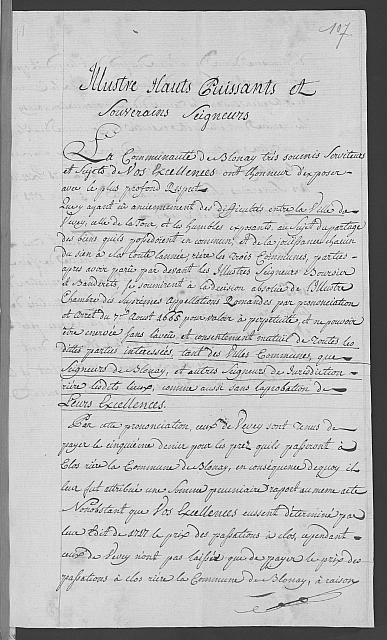 107
Illustre Hauts Puissants et
Souverains Seigneurs
La Communauté de Blonay très soumis Serviteurs
et Sujets de Vos Excellences ont lhonneur d'exposer
avec le plus profond Respect
Quy ayant eu anciennement des difficultés entre la Ville de
Vevey, celle de la Tour, et les humbles exposants, au Sujet du partage
des biens quils possedoient en commun, et de la poissance chacun
du sien à clos toute lannée, riére les trois Communes, parties
apres avoir parû par devant les Illustres Seigneurs Boursier
et Banderets, se soumirent à la decision absolüe de l'Illustre
Chambre des Suprémes Appellations Romandes par prononciation
et arret du 7e Aoust 1666 pour valoir à perpetuité, et ne pouvoir
être enervée sans laveu et consentement mutuel de toutes les
dittes parties interessées, tant des Villes Communes, que
Seigneurs de Blonay, et autres Seigneurs de Jurisdiction
riére lesdits lieux, comme aussi sans laprobation de
Leurs Excellences.
Par cette prononciation, ceux de Vevey sont tenus de
payer le cinquiéme denier pour les prez quils passeront à
Clos riére la Commune de Blonay, en conséquence dequoy il
leur fut attribué une Somme pecuniaire raport au meme acte
Nonobstant que Vos Excellences eussent déterminé par
leur Edit de 1717 le prix des passations à clos, cependant
ceux de Vevey nont pas laissé que de payer le prix des
passations à clos riére la Commune de Blonay, à raison